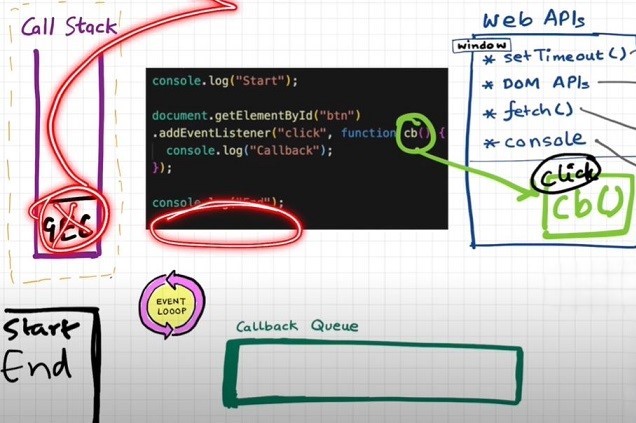 Call Stack
GEC
console.log("Start");
document.getElementById("btn")
.addEventListener("click", function cb() {
console.log("Callback");
});
console.log("End");
Web APIs
window
* setTimeout()
* DOM APIs
* fetch()
* console
click
cb()
EVENT
LOOOP
Start
End
Callback Queue